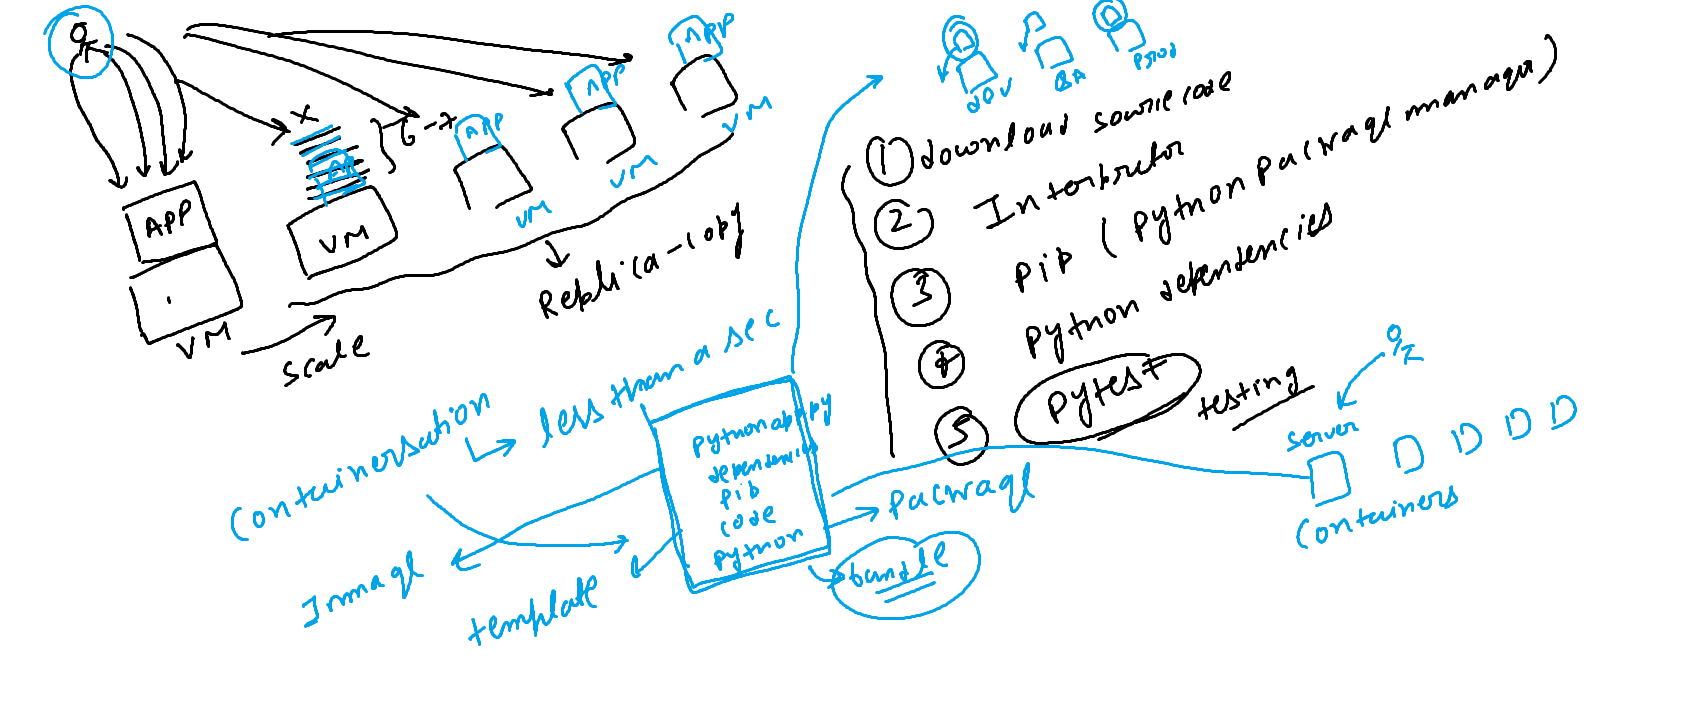 APP
VM
scale
X
6-7
VM
APP
VM
APP
VM
APP
VM
Replica-copy
dev
QA
prod
1 download source code
2 Interprutor
3 pip (python package manager)
4 python dependencies
5 pytest
testing
Containersation
less than a sec
python app py
dependencies
pip
code
python
Immage
template
package
bundle
server
Containers